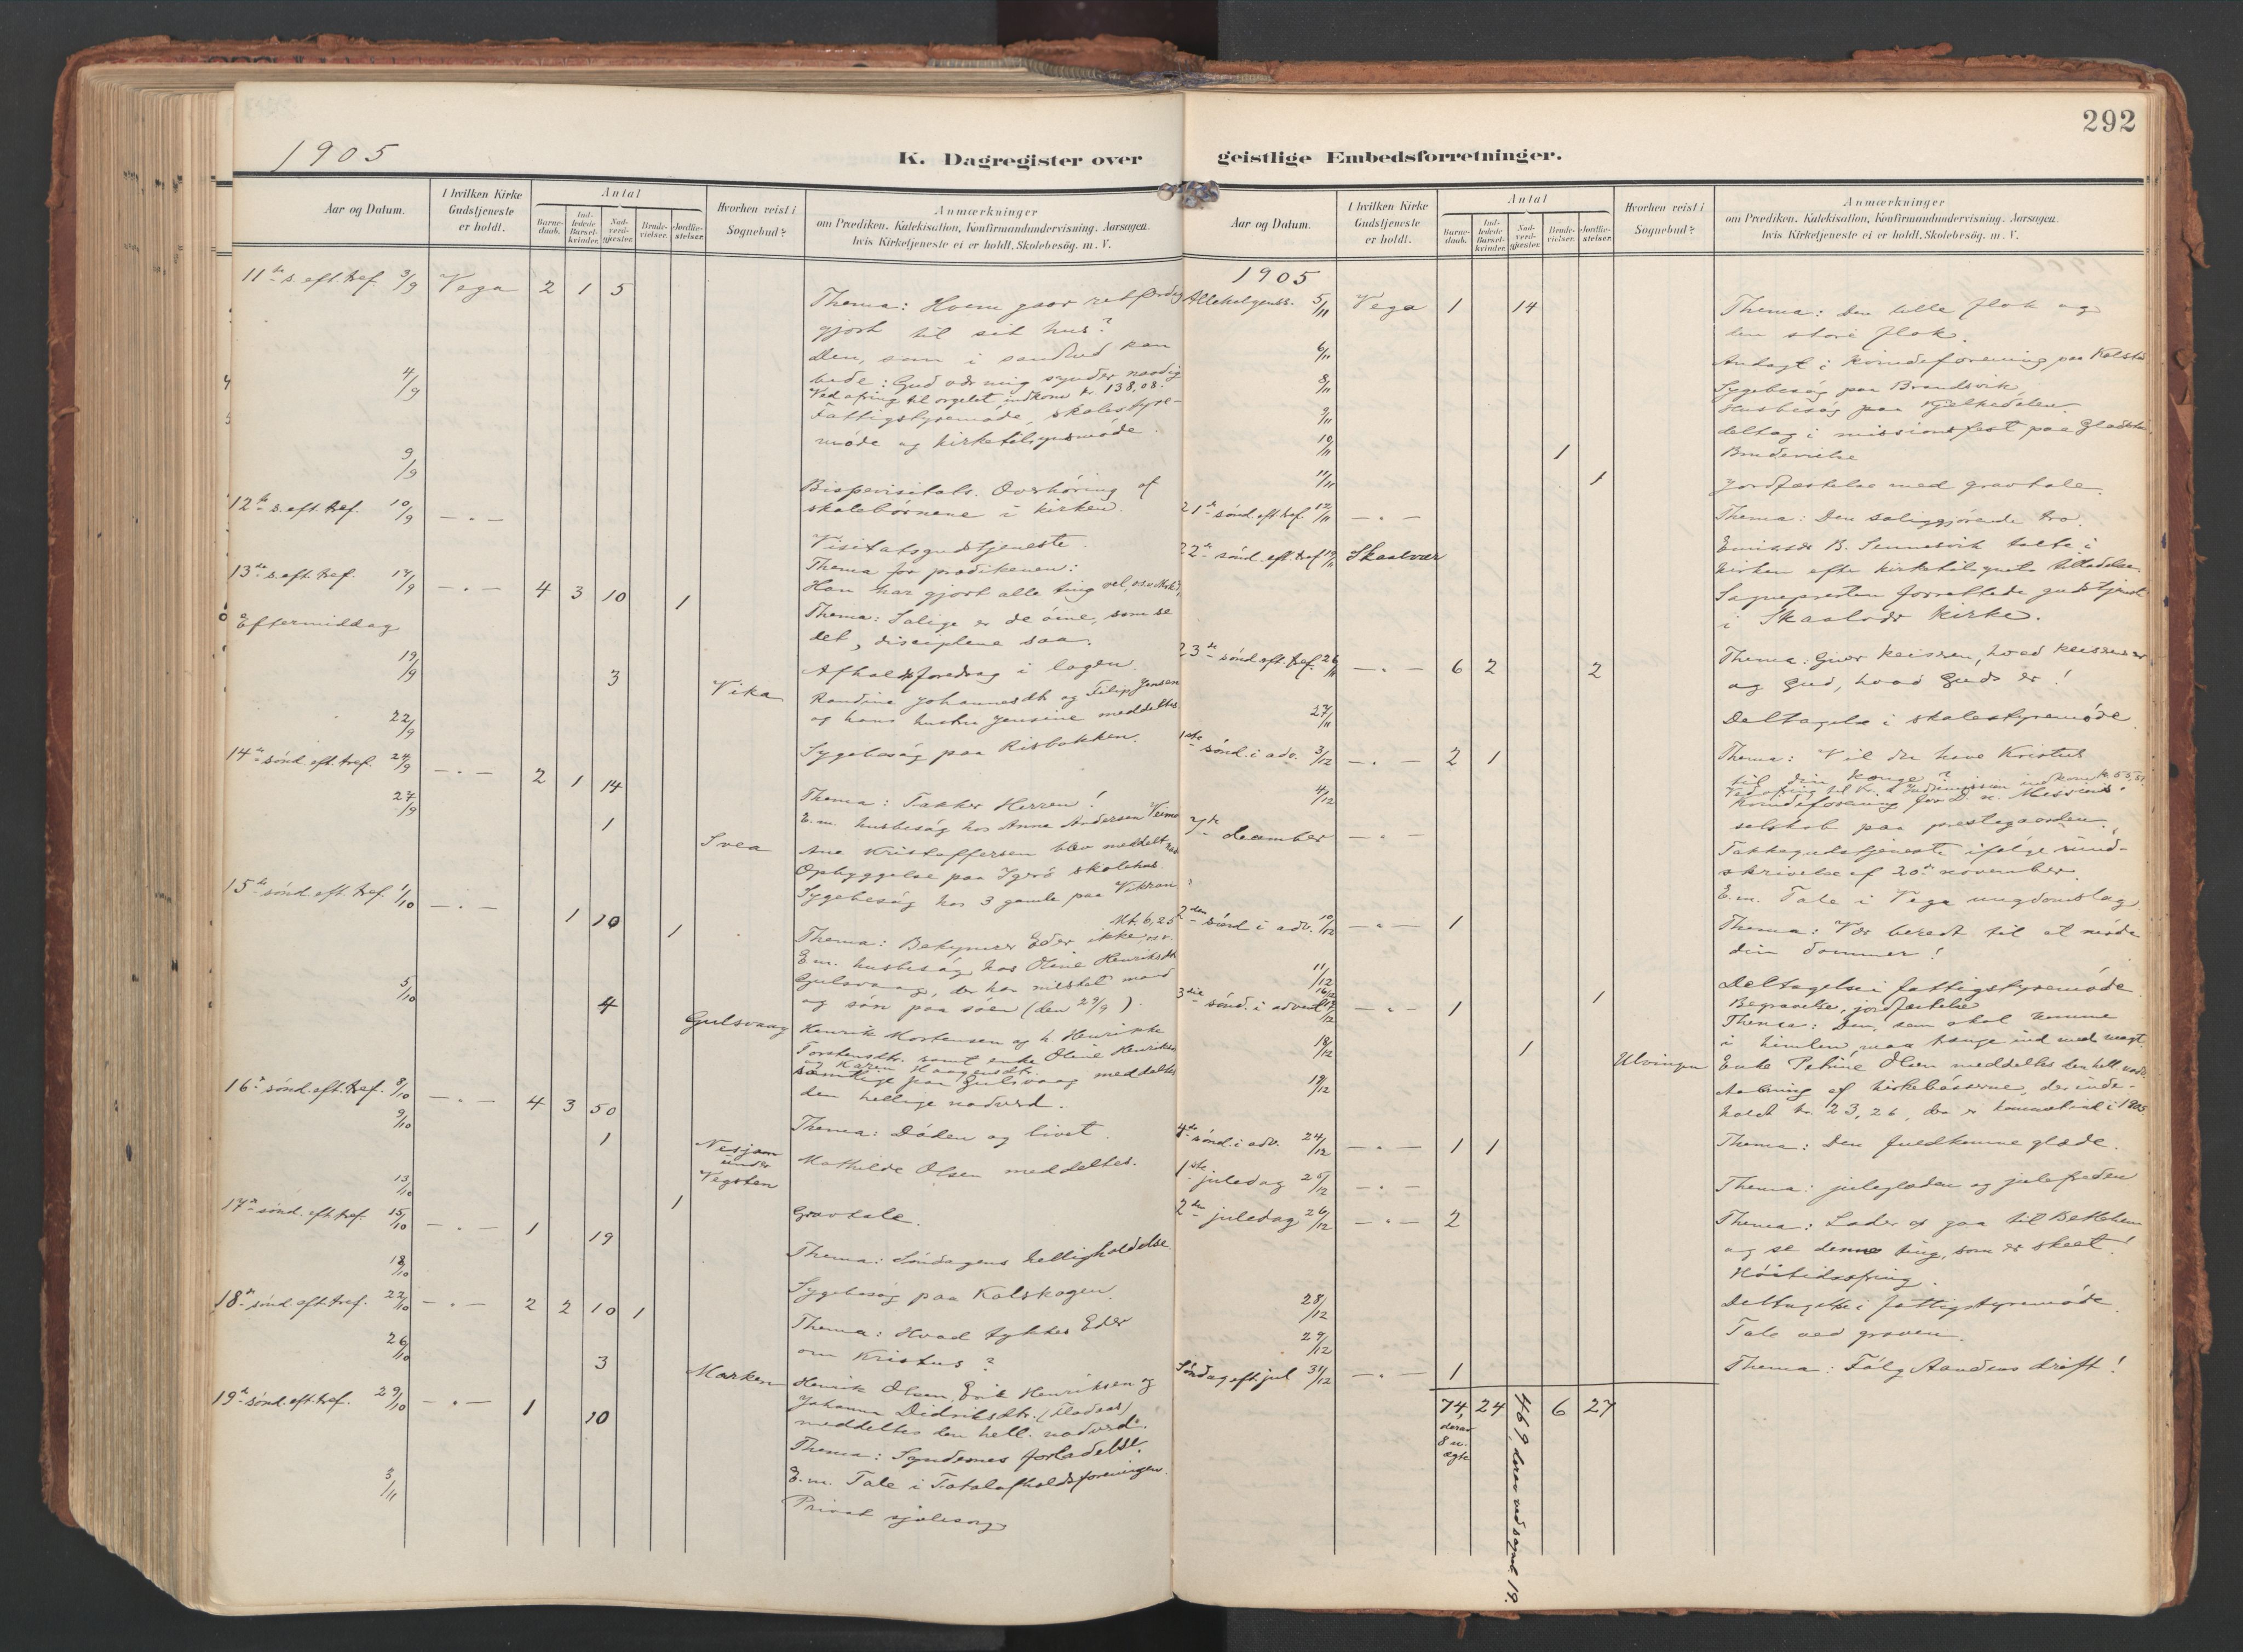 1905
K. Dagregister over
Aar og Datum.
I hvilken Kirke
Gudstjeneste
er holdt.
Antal
Barne-
daab.
Ind-
ledede
Barsel-
kvinder.
Nad-
verd-
gjester.
Brude-
vielser.
Jordfæ-
stelser.
Hvorhen reist i
Sognebud?
Anmærkninger
om Prædiken, Katekisation, Konfirmandundervisning, Aarsagen
hvis Kirketjeneste ei er holdt, Skolebesög. m. V.
11te s. eft. tref. 3/9 Vega 2 1 5
Thema: Hvem gaar retfærdig
gjort til sit hus?
Den, som i sandhed kan
bede: Gud vær mig synder naadig
Ved ofring til orgelet indkom kr. 138,08.
4/9 Fattigstyremöde, skolestyre-
möde og kirketilsynsmöde.
9/9 Bispevisitats. Overhöring af
skolebörnene i kirken.
12te s. eft. tref. 10/9 — . —
Visitatsgudstjeneste.
Thema for prædikenen:
Han har gjort alle ting vel,
13de s. eft. tref. 17/9 — . — 4 3 10 1
Thema: Salige er de öine, som se
det, disciplene saa.
Eftermiddag
Afholdsforedrag i logen.
19/9 3 Vika
Randine Johannesdt. og Filip Jensen
og hans hustru Jensine meddeltes
22/9 Sygebesög paa Risbakken.
14de sönd. eft. tref. 24/9 — . — 2 1 14
Thema: Takker Herren!
E.m. husbesög hos Anna Andersen
27/9 1 Svea
Ane Kristoffersen blev meddelt
Opbyggelse paa skolehus.
Sygebesög hos 3 gamle paa
15de sönd. eft. tref. 1/10 — . — 1 10 1
Mt. 6,25
Thema: Bekymrer Eder ikke
E.m. husbesög hos Oline Henriksdt.
Gulsvaag, der har mistet mand
og sön paa söen (den 29/9).
5/10 4 Gulsvaag
Henrik Mortensen og h. Henrikke
Torstensdtr. samt enke Oline Henriksd
og Karen Haagensdtr.
samtlige fra Gulsvaag meddeltes
den hellige nadverd.
16de sönd. eft. tref. 8/10 — . — 4 3 50
Thema: Döden og livet.
9/10 1 Nesjom
under
Vegsten
Mathilde Olsen meddeltes.
13/10 1
Gravtale.
17de sönd. eft. tref. 15/10 — . — 1 19
Thema: Söndagens helligholdelse.
18/10
Sygebesög paa Kolskogen.
18de sönd. eft. tref. 22/10 — . — 2 2 10 1
Thema: Hvad tykkes Eder
om Kristus?
26/10 3 Marken
Henrik Olsen, Erik Henriksen og
Johanna Didriksdtr.
meddeltes den hell. nadverd.
19de sönd. eft. tref. 29/10 — . — 1 10
Thema: Syndernes forladelse.
E.m. Tale i Totalafholdsforeningen.
3/11
Privat sjælesorg
292
geistlige Embedsforretninger.
Aar og Datum.
I hvilken Kirke
Gudstjeneste
er holdt.
Antal
Barne-
daab.
Ind-
ledede
Barsel-
kvinder.
Nad-
verd-
gjester.
Brude-
vielser.
Jordfæ-
stelser.
Hvorhen reist i
Sognebud?
Anmærkninger
om Prædiken, Katekisation, Konfirmandundervisning, Aarsagen
hvis Kirketjeneste ei er holdt, Skolebesög. m. V.
1905
Allehelgenss. 5/11 Vega 1 14
Thema: Den lille flok og
den store flok.
6/11 Andagt i kvindeforening paa
8/11 Sygebesög paa Brandsvik
Husbesög paa
9/11 deltag i missionsfest paa
10/11 1 Brudevielse
11/11 1 Jordfæstelse med gravtale.
21de sönd. eft. tref. 12/11 — . —
Thema: Den saliggjörende tro.
22de sönd. eft. tref. 19/11 Skaalvær
Emissær B. Sennesvik talte i
kirken efter kirketilsynets tilladelse.
Sognepresten forrettede gudstjeneste
i Skaalvær Kirke.
23de sönd. eft. tref. 26/11 — . — 6 2 2
Thema: Giver keiseren, hvad keiserens er
og Gud, hvad Guds er!
27/11 Deltagelse i skolestyremöde.
1ste sönd. i adv. 3/12 — . — 2 1
Thema: Vil du have Kristus
til din konge?
4/12
Kvindeforening for D. n. Missions-
selskab paa prestegaarden.
7de december — . —
Takkegudstjeneste ifölge rund-
skrivelse af 20de november.
E.m. Tale i Vega ungdomslag.
2den sönd i adv. 10/12 — . — 1
Thema: Vær beredt til at möde
din dommer!
11/12 Deltagelse i fattigstyremöde.
16/12 1 Begravelse, jordfæstelse
3die sönd. i advent 17/12 — . — 1
Thema: Den, som skal komme
i himlen, maa trænge ind med magt.
18/12 1 Ulvingen
Enke Petrine Olsen meddeltes den hell. nadv.
19/12 Aabning af kirkebösserne, der inde-
holdt kr. 23,26, der er kommet ind i 1905.
4de sönd. i adv. 24/12 — . — 1 1
Thema: Den fuldkomne glæde.
1ste juledag 25/12 — . —
Thema: juleglæden og julefreden
2den juledag 26/12 — . — 2
Thema: Lader os gaa til Bethlehem
og se denne ting, som er skeet!
Höitidsofring.
28/12 Deltagelse i fattigstyremöde.
29/12 Tale ved graven.
Söndag eft. jul 31/12 — . — 1
Thema: Fölg Aandens drift!
74, 24 469, deraf ved sognebud 19. 6 27
deraf
8 u-
ægte